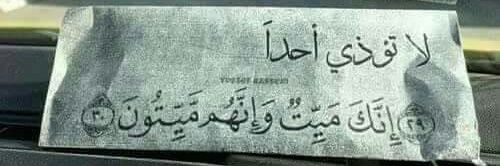 لا تؤذي أحداً
YOUSEF HASSEIN
﴿٢٩﴾ إِنَّكَ مَيِّتٌ وَإِنَّهُم مَّيِّتُونَ ﴿٣٠﴾